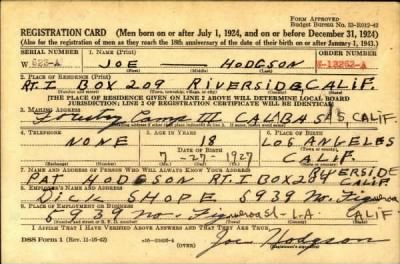 FORM APPROVED
Budget Bureau No.
REGISTRATION CARD (Men born on or after July 1, 1924, and on or before December 31, 1924)
(Also for the registration of men as they reach the 18th anniversary of the date of their birth on or after January 1, 1943.)
SERIAL NUMBER
1. NAME (Print)
ORDER NUMBER
W. 623-A
JOE — HODGSON
(First) (Middle) (Last)
2. PLACE OF RESIDENCE (Print)
RT. I BOX 209 RIVERSIDE, CALIF.
[THE PLACE OF RESIDENCE GIVEN ON LINE 2 ABOVE WILL DETERMINE LOCAL BOARD
JURISDICTION; LINE 2 OF REGISTRATION CERTIFICATE WILL BE IDENTICAL]
3. MAILING ADDRESS
Camp III CALABASAS, CALIF.
4. TELEPHONE
5. AGE IN YEARS
6. PLACE OF BIRTH
NONE
LOS ANGELES
DATE OF BIRTH
7-27-1927
CALIF.
7. NAME AND ADDRESS OF PERSON WHO WILL ALWAYS KNOW YOUR ADDRESS
PAT HODGSON RT. I BOX RIVERSIDE CALIF.
8. EMPLOYER'S NAME AND ADDRESS
DICK SHOPE 5939 No. Figueroa
9. PLACE OF EMPLOYMENT OR BUSINESS
5939 No. Figueroa St. L.A. CALIF
I AFFIRM THAT I HAVE VERIFIED ABOVE ANSWERS AND THAT THEY ARE TRUE.
DSS Form 1 (Rev. 11-16-42)
(OVER)
Joe Hodgson